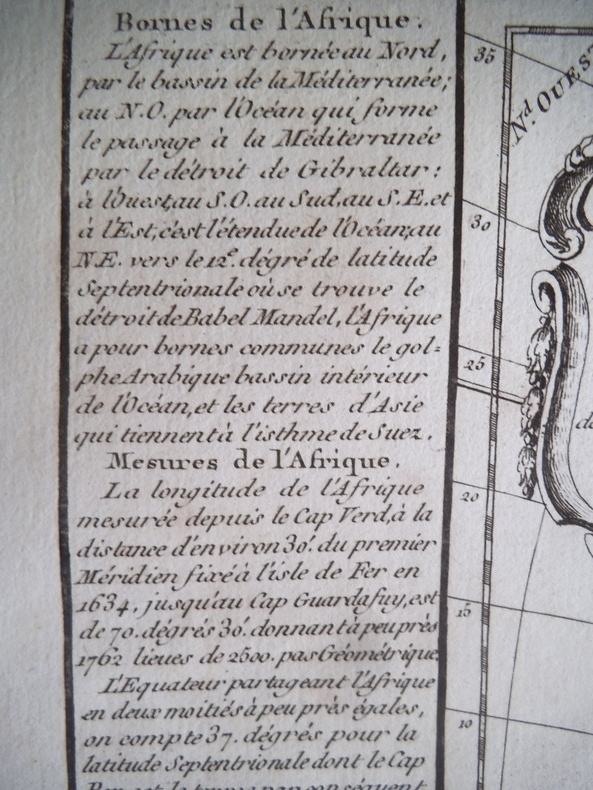 Bornes de l'Afrique.
L'Afrique est bornée au Nord,
par le bassin de la Méditerranée;
au N.O. par l'Océan qui forme
le passage à la Méditerranée
par le détroit de Gibraltar:
à l'Ouest, au S.O. au Sud, au S.E. et
à l'Est, c'est l'étendue de l'Océan; au
N.E. vers le 12e. dégré de latitude
Septentrionale où se trouve le
détroit de Babel Mandel, l'Afrique
a pour bornes communes le gol=
phe Arabique bassin intérieur
de l'Océan, et les terres d'Asie
qui tiennent à l'isthme de Suez.
Mesures de l'Afrique.
La longitude de l'Afrique
mesurée depuis le Cap Verd, à la
distance d'environ 30'. du premier
Méridien fixé à l'isle de Fer en
1634, jusqu'au Cap Guardafuy, est
de 70. dégrés 30'. donnant à peu près
1762 lieues de 2500. pas Géométrique.
L'Equateur partageant l'Afrique
en deux moitiés à peu près égales,
on compte 37. dégrés pour la
latitude Septentrionale dont le Cap
Bon est le terme par conséquent
35
Nd. OUEST
30
25
20
15
10